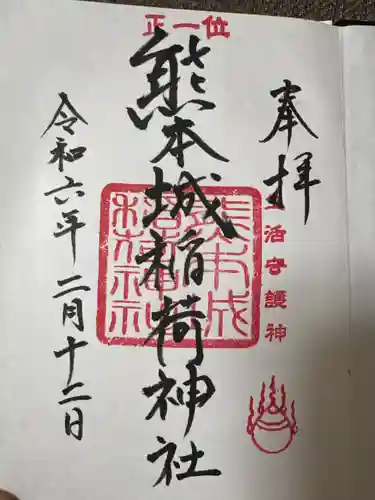 正一位
奉拝
生活守護神
熊本城稲荷神社
熊本城稲荷神社
令和六年二月十二日